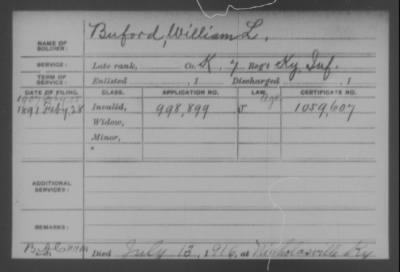 NAME OF SOLDIER: Buford, William L.
SERVICE: Late rank, Co. K, 7 Reg't Ky. Inf.
TERM OF SERVICE: Enlisted , 1 Discharged , 1
DATE OF FILING. CLASS. APPLICATION NO. LAW. CERTIFICATE NO.
1891 Feby. 28 Invalid, 998,899 1059,607
Widow,
Minor,
ADDITIONAL SERVICES:
REMARKS:
Died July 13, 1916, at Nicholasville Ky